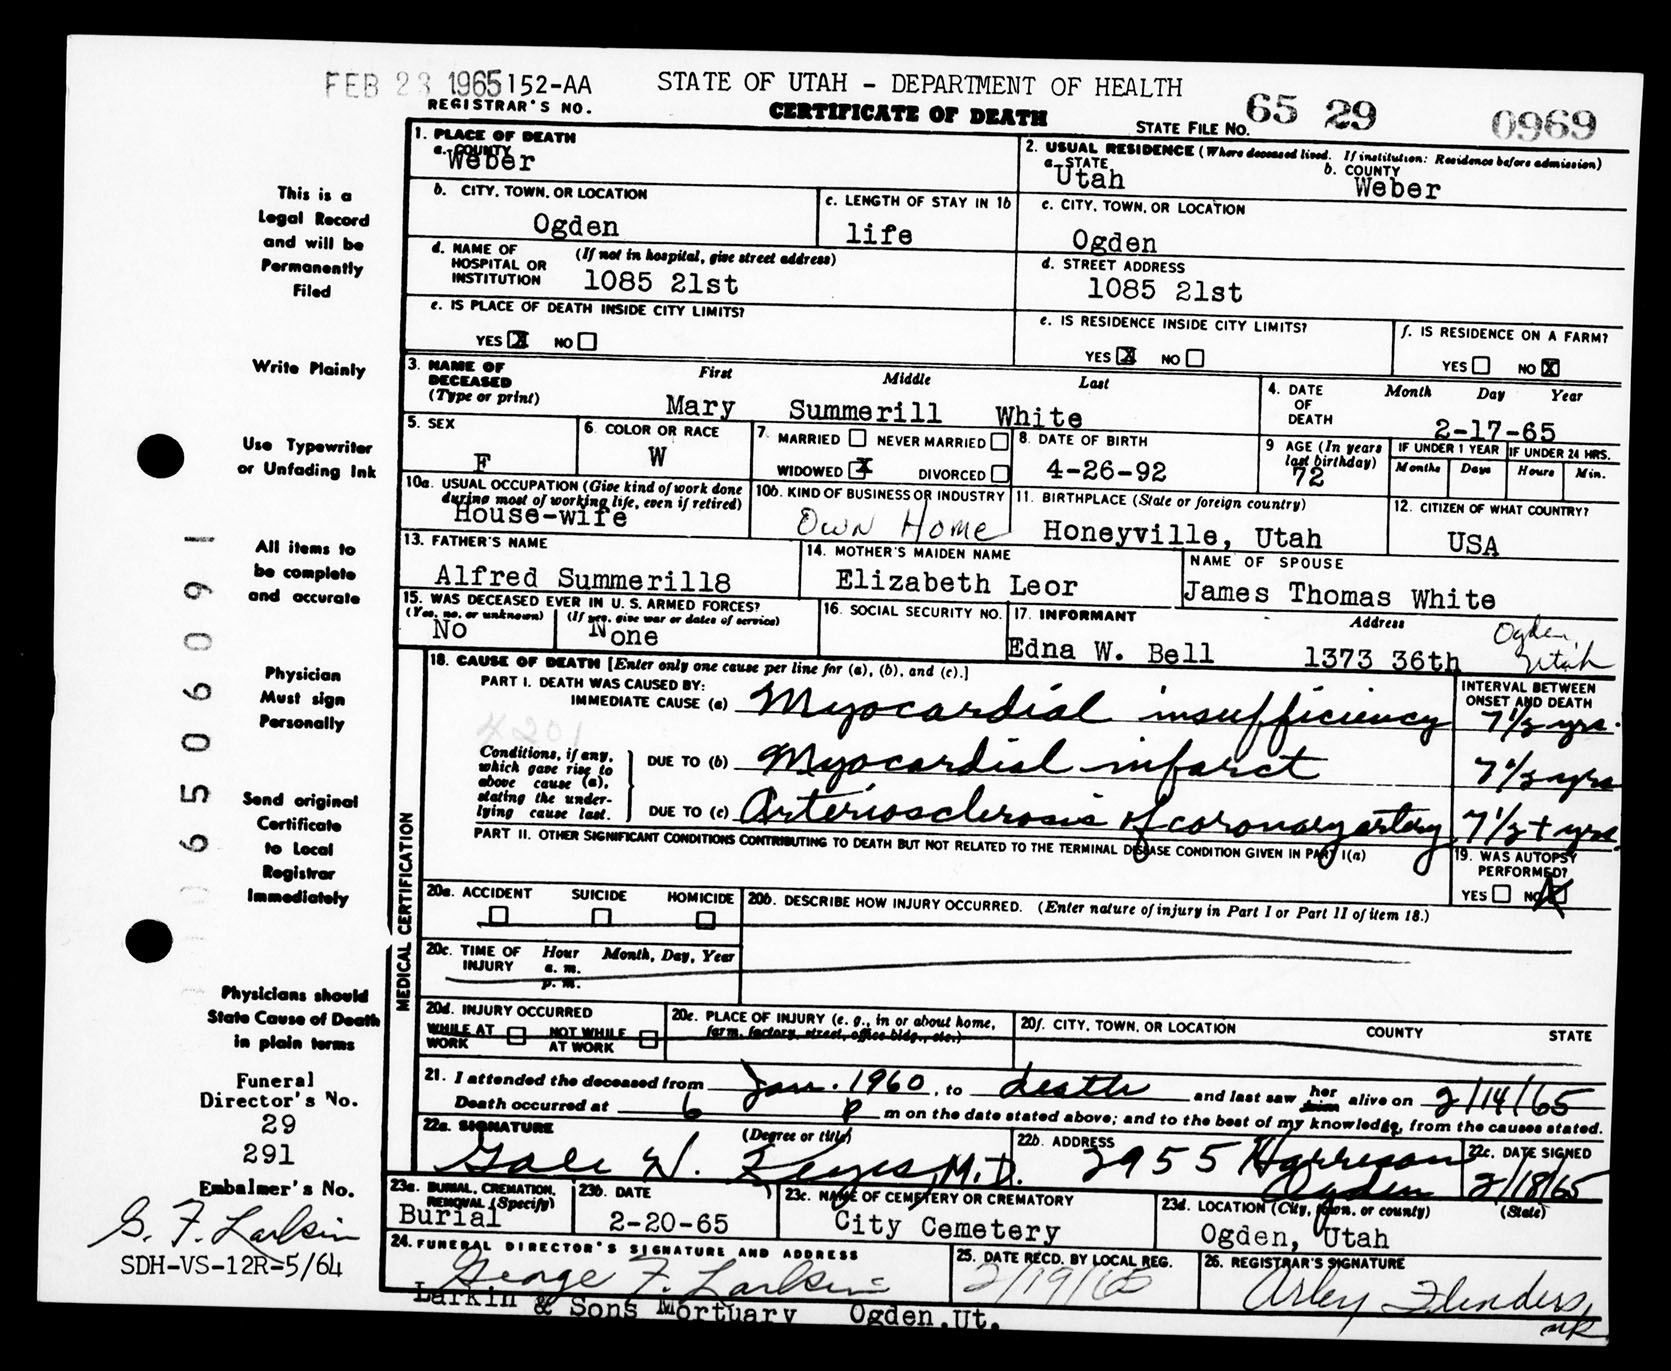 FEB 23 1965 152-AA STATE OF UTAH - DEPARTMENT OF HEALTH
REGISTRAR'S NO. CERTIFICATE OF DEATH STATE FILE NO. 65 29 0969
This is a
Legal Record
and will be
Permanently
Filed
Write Plainly
Use Typewriter
or Unfading Ink
All items to
be complete
and accurate
Physician
Must sign
Personally
Send original
Certificate
to Local
Registrar
Immediately
Physicians should
State Cause of Death
in plain terms
Funeral
Director's No.
29
291
Embalmer's No.
G. F. Larkin
SDH-VS-12R-5/64
1. PLACE OF DEATH
a. COUNTY
Weber
2. USUAL RESIDENCE (Where deceased lived. If institution: Residence before admission)
a. STATE b. COUNTY
Utah Weber
b. CITY, TOWN, OR LOCATION
Ogden
c. LENGTH OF STAY IN 1b
life
c. CITY, TOWN, OR LOCATION
Ogden
d. NAME OF HOSPITAL OR INSTITUTION (If not in hospital, give street address)
1085 21st
d. STREET ADDRESS
1085 21st
e. IS PLACE OF DEATH INSIDE CITY LIMITS?
YES X NO
e. IS RESIDENCE INSIDE CITY LIMITS?
YES X NO
f. IS RESIDENCE ON A FARM?
YES NO X
3. NAME OF DECEASED (Type or print) First Middle Last
Mary Summerill White
4. DATE OF DEATH Month Day Year
2-17-65
5. SEX
F
6. COLOR OR RACE
W
7. MARRIED NEVER MARRIED
WIDOWED X DIVORCED
8. DATE OF BIRTH
4-26-92
9 AGE (In years last birthday)
72
IF UNDER 1 YEAR IF UNDER 24 HRS.
Months Days Hours Min.
10a. USUAL OCCUPATION (Give kind of work done during most of working life, even if retired)
House-wife
10b. KIND OF BUSINESS OR INDUSTRY
Own Home
11. BIRTHPLACE (State or foreign country)
Honeyville, Utah
12. CITIZEN OF WHAT COUNTRY?
USA
13. FATHER'S NAME
Alfred Summerill8
14. MOTHER'S MAIDEN NAME
Elizabeth Leor
NAME OF SPOUSE
James Thomas White
15. WAS DECEASED EVER IN U.S. ARMED FORCES?
(Yes, no, or unknown) (If yes, give war or dates of service)
No None
16. SOCIAL SECURITY NO.
17. INFORMANT Address
Edna W. Bell 1373 36th Ogden, Utah
MEDICAL CERTIFICATION
18. CAUSE OF DEATH [Enter only one cause per line for (a), (b), and (c).]
PART I. DEATH WAS CAUSED BY:
IMMEDIATE CAUSE (a) Myocardial insufficiency
INTERVAL BETWEEN ONSET AND DEATH
7 1/2 yrs.
4201
Conditions, if any, which gave rise to above cause (a), stating the underlying cause last.
DUE TO (b) Myocardial infarct 7 1/2 yrs
DUE TO (c) Arteriosclerosis of coronary artery 7 1/2 + yrs
PART II. OTHER SIGNIFICANT CONDITIONS CONTRIBUTING TO DEATH BUT NOT RELATED TO THE TERMINAL DISEASE CONDITION GIVEN IN PART I(a)
19. WAS AUTOPSY PERFORMED?
YES NO X
20a. ACCIDENT SUICIDE HOMICIDE
20b. DESCRIBE HOW INJURY OCCURRED. (Enter nature of injury in Part I or Part II of item 18.)
20c. TIME OF INJURY Hour Month, Day, Year
a. m.
p. m.
20d. INJURY OCCURRED
WHILE AT WORK NOT WHILE AT WORK
20e. PLACE OF INJURY (e. g., in or about home, farm, factory, street, office bldg., etc.)
20f. CITY, TOWN, OR LOCATION COUNTY STATE
21. I attended the deceased from Jan. 1960, to death and last saw her him alive on 2/14/65
Death occurred at 6 P m on the date stated above; and to the best of my knowledge, from the causes stated.
22a. SIGNATURE (Degree or title)
Gale W. Keyes, M.D.
22b. ADDRESS
2955 Harrison
Ogden
22c. DATE SIGNED
2/18/65
23a. BURIAL, CREMATION, REMOVAL (Specify)
Burial
23b. DATE
2-20-65
23c. NAME OF CEMETERY OR CREMATORY
City Cemetery
23d. LOCATION (City, town, or county) (State)
Ogden, Utah
24. FUNERAL DIRECTOR'S SIGNATURE AND ADDRESS
George F. Larkin
Larkin & Sons Mortuary Ogden, Ut.
25. DATE RECD. BY LOCAL REG.
2/19/65
26. REGISTRAR'S SIGNATURE
Arley Flinders,